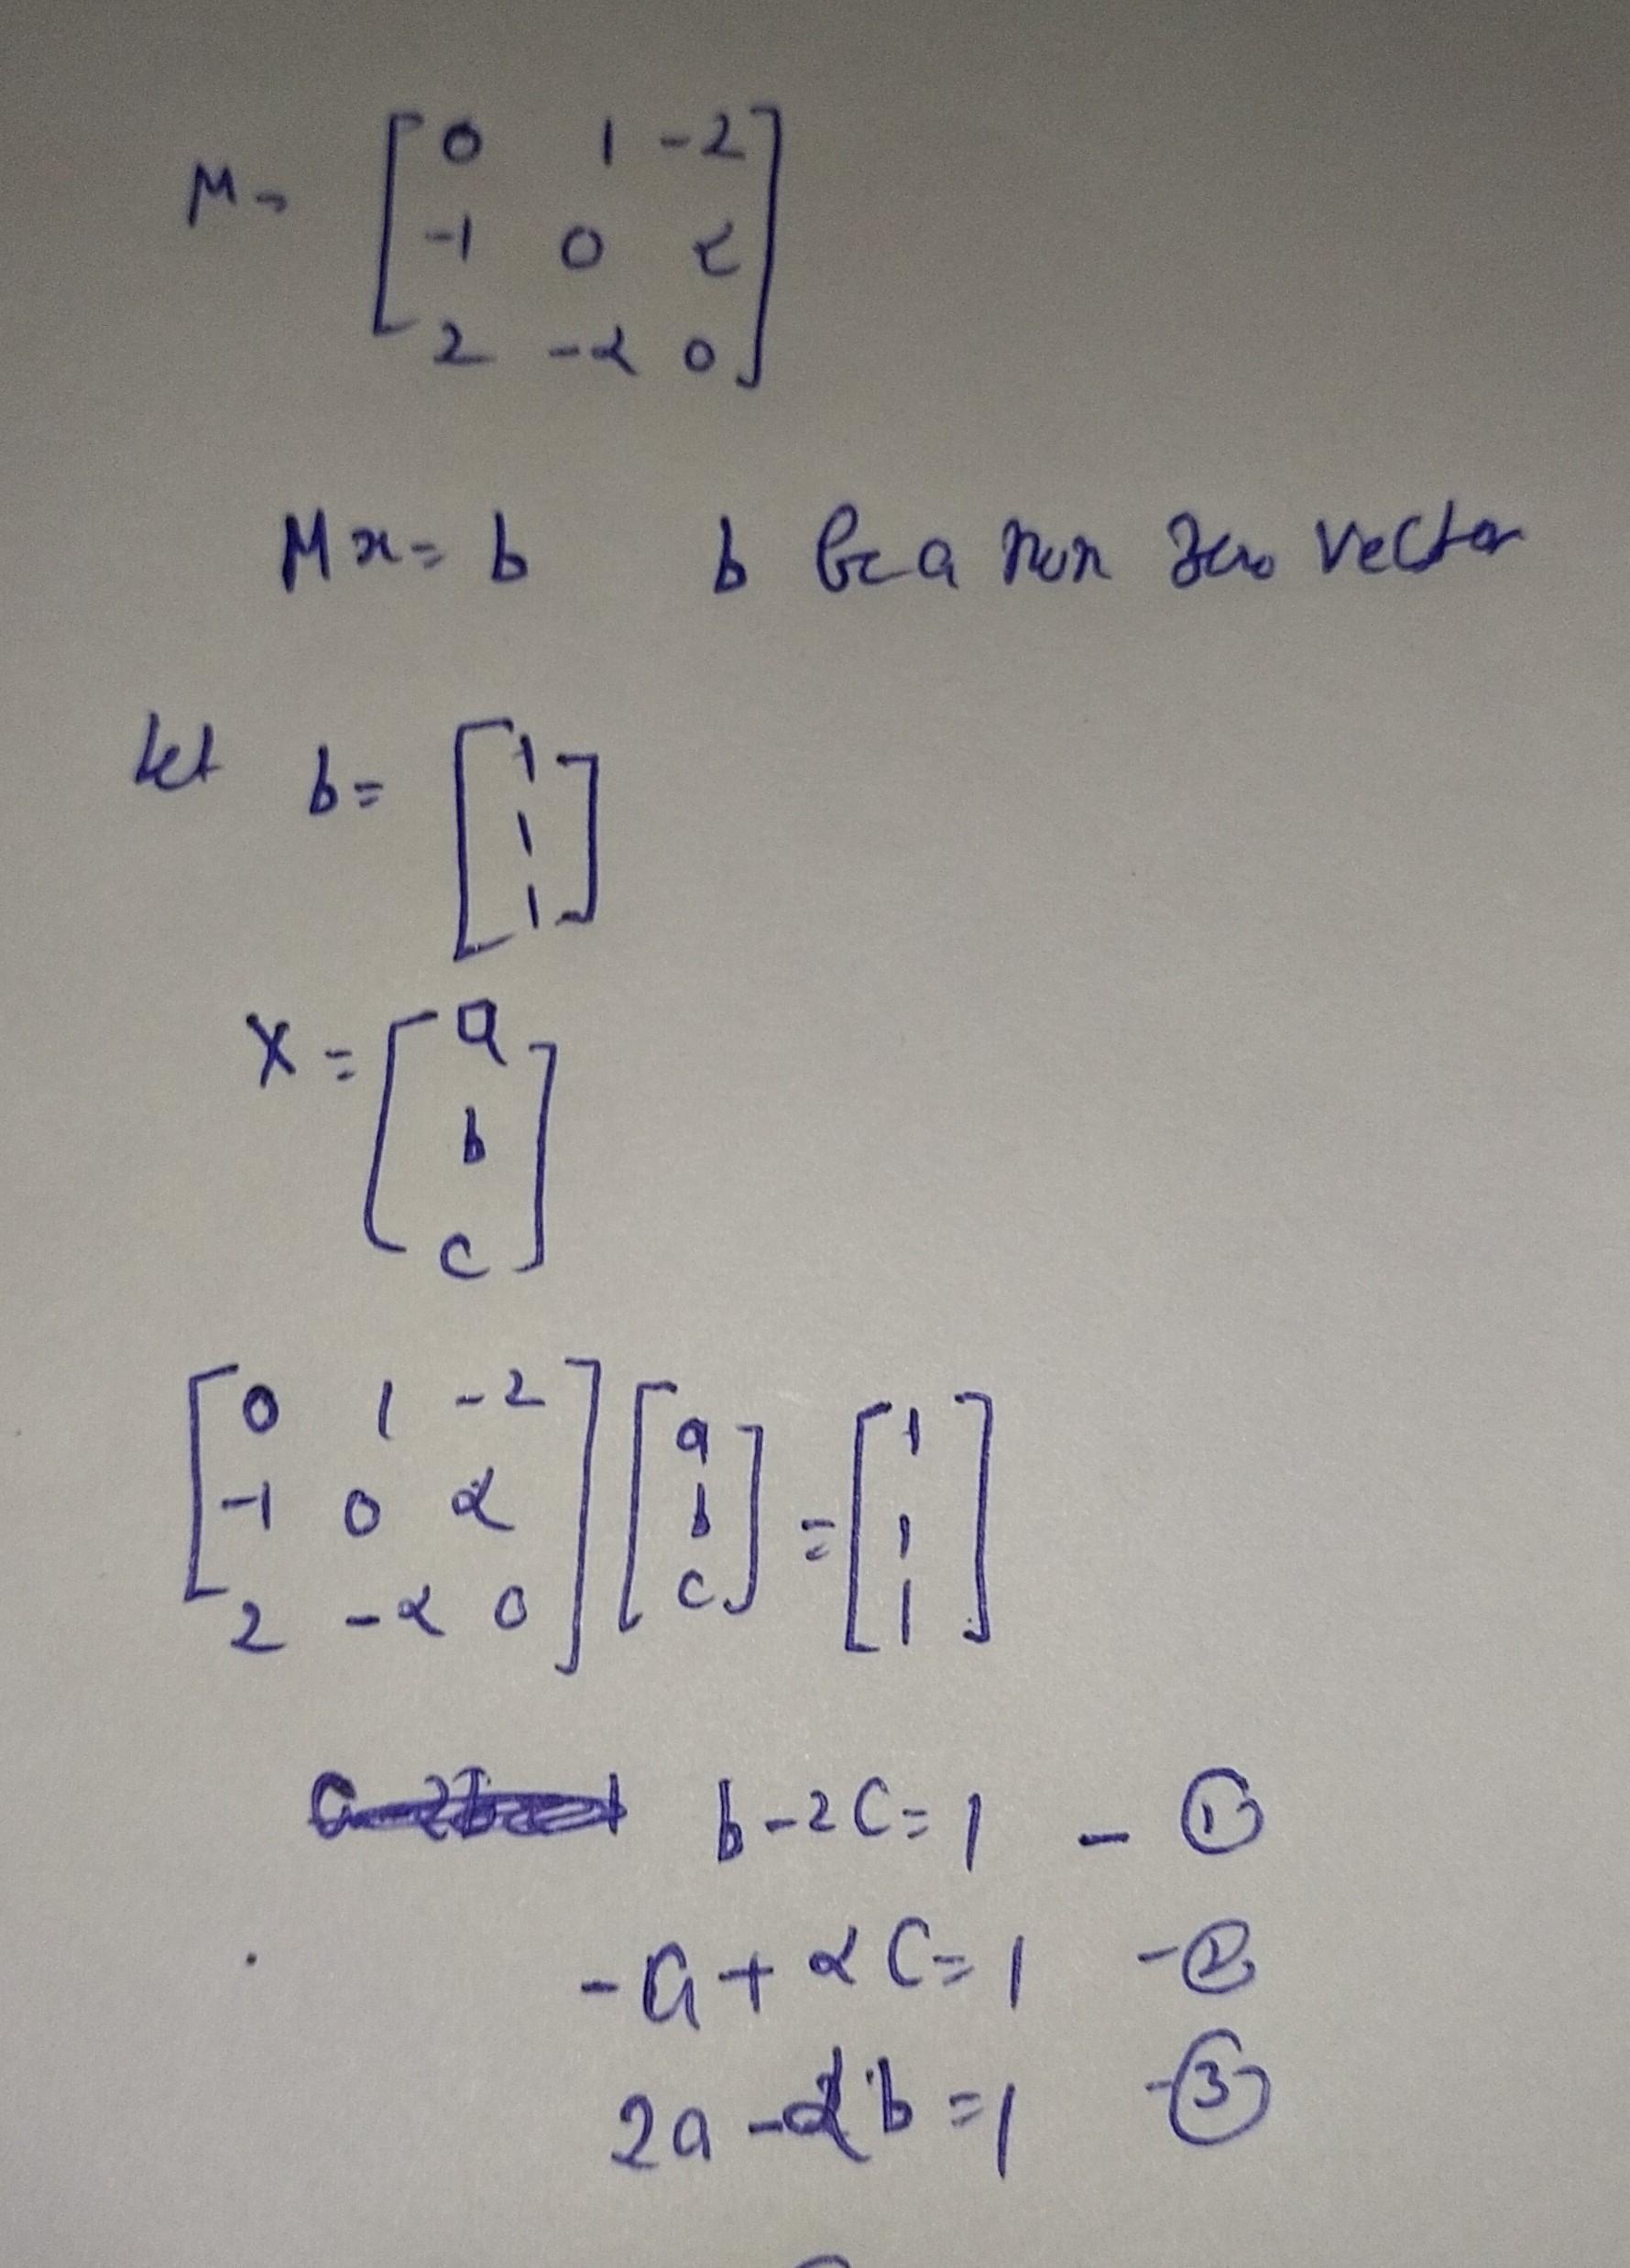 M = [ 0 1 -2
-1 0 α
2 -α 0 ]
Mx = b b be a non zero vector
Let b = [ 1
1
1 ]
X = [ a
b
c ]
[ 0 1 -2 ] [ a ] = [ 1 ]
[ -1 0 α ] [ b ] = [ 1 ]
[ 2 -α 0 ] [ c ] = [ 1 ]
b - 2C = 1 - ①
-a + αC = 1 - ②
2a - αb = 1 - ③